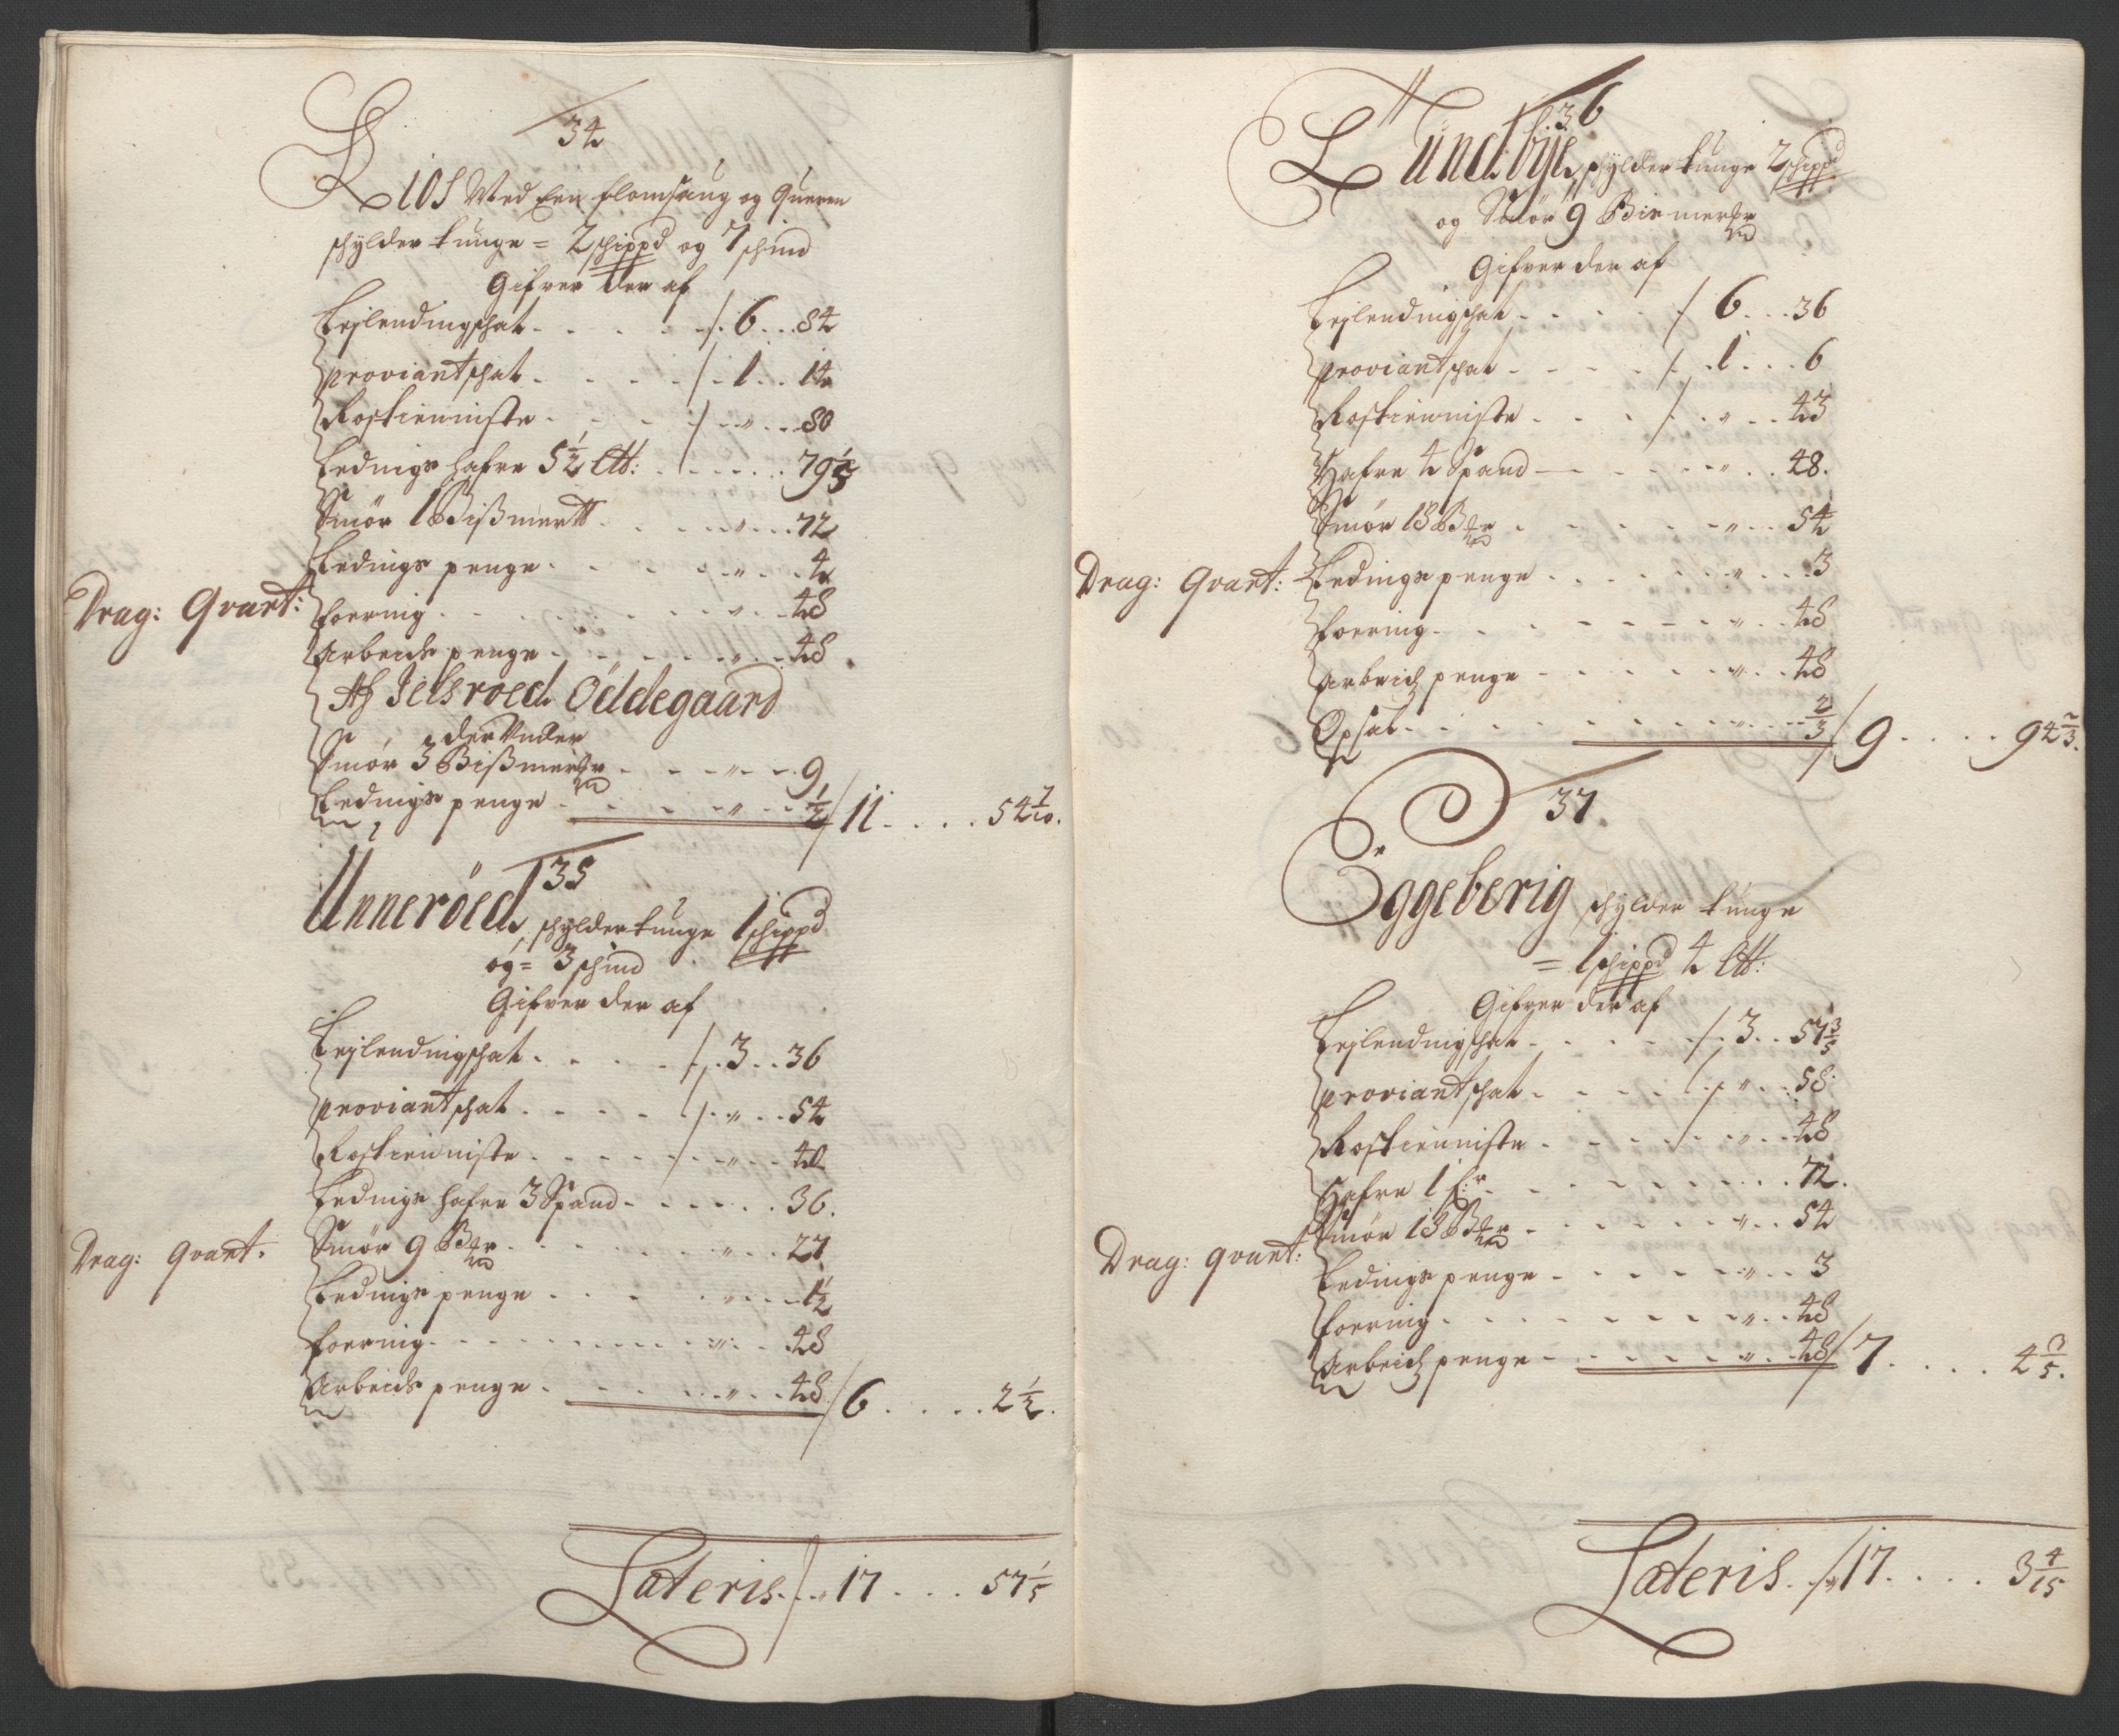 34
Kiøs Med Een flomsaug og Quern
schylder tunge = 2 schippd og 7 schind
Gifver der af
Leylendingschat - - - /. 6 . . 84
Proviantschat - - - / - 1 . . 14
Rostienniste - - - / - „ . . 80
Ledings hafre 5½ Ltt: . - - - - 79 1/5
Smør 1 Bißmertt - - - „ . . 72
Ledings penge - - - „ . . 4
Drag: Qvart: foering - - - „ . . 48
Arbeids penge - - - „ . . 48
Af Jelsroed Öddegaard
der Under
Smør 3 Bißmerkr - - „ - - 9
Ledings penge - - - „ - - ½ / 11 . . . . 54 7/10.
35
Unneröed, schylder tunge 1 schippd
og = 3 schind
Gifver der af
Leylendingschat - - - /. 3 . . 36
Proviantschat - - - /. „ . . 54
Rostienniste - - - / - „ . . 40
Ledings hafre 3 Spand - - - - 36.
Drag: qvart. Smør 9 Bmkr - - - „ . . 27
Ledings penge - - - „ . . 1½
foering - - - „ . . 48
Arbeids penge - - - „ . . 48 / 6 . . . . 2½.
Lateris - - / „ 17 . . . 57 1/5
36
Lundbye, schylder tunge 2 schippd
og Smør 9 Bismerkr
Gifver der af
Leylendingschat - - - / 6 . . . 36
Proviantschat - - - /. . 1 . . . 6
Rostienniste - - - / . „ . . 43
Hafre 4 Spand - - - „ . . 48.
Smør 18 Bmkr - - - „ . . 54
Drag: Qvart: Ledings penge - - - „ . . 3
foering - - - „ . . 48
Arbeids penge - - - „ . . 48
Opsat - - - „ - - 2/3 / 9 . . . . 94 2/3.
37.
Eggeberig schylder tunge
= 1 schippd 4 Ltt:
Gifver der af
Leylendingschat - - - /. 3 . . 57 3/5
Proviantschat - - - /. „ . . 58.
Rostienniste - - - / - „ . . 48
Hafre 1 t:r - - - - 72.
Smør 18 Bmkr - - - „ . . 54
Drag: qvart: Ledings penge - - - „ . . 3
foering - - - „ . . 48
Arbeids penge - - - „ . . 48 / 7 . . . . 4 3/5.
Lateris . / „ 17 . . . . 3 4/15